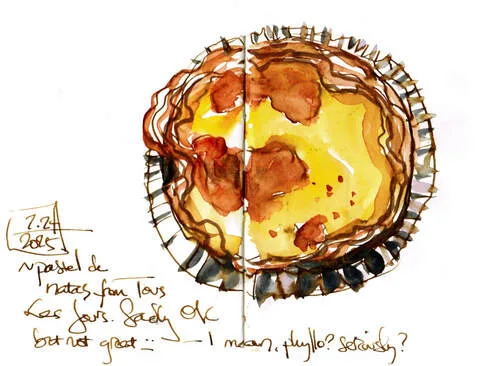 2025
~ pastel de
natas from Tous
Les Jours. Sadly OK
but not great :: — I mean, phyllo? Seriously?